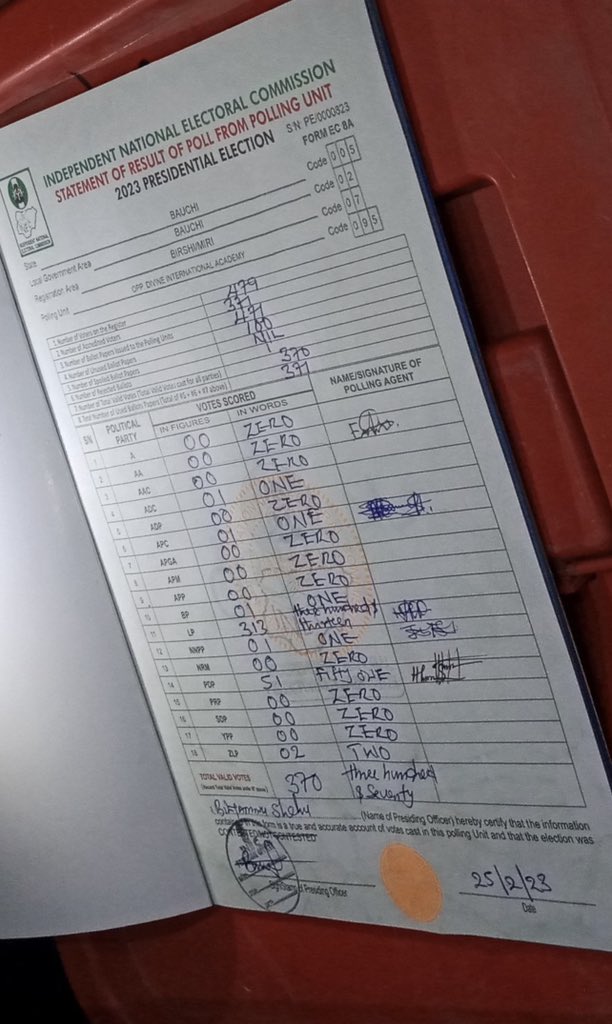 INDEPENDENT NATIONAL ELECTORAL COMMISSION
STATEMENT OF RESULT OF POLL FROM POLLING UNIT
2023 PRESIDENTIAL ELECTION
S/N: PE/0000823
FORM EC 8A
State BAUCHI Code 005
Local Government Area BAUCHI Code 02
Registration Area BIRSHI/MIRI Code 07
Polling Unit OPP. DIVINE INTERNATIONAL ACADEMY Code 095
1. Number of Voters on the Register 479
2. Number of Accredited Voters 371
3. Number of Ballot Papers Issued to the Polling Units 471
4. Number of Unused Ballot Papers 100
5. Number of Spoiled Ballot Papers NIL
6. Number of Rejected Ballots 1
7. Number of Total Valid Votes (Total Valid Votes cast for all parties) 370
8. Total Number of Used Ballots Papers (Total of #5 + #6 + #7 above) 371
SN POLITICAL PARTY VOTES SCORED IN FIGURES IN WORDS NAME/SIGNATURE OF POLLING AGENT
1 A 00 ZERO
2 AA 00 ZERO
3 AAC 00 ZERO
4 ADC 01 ONE
5 ADP 00 ZERO
6 APC 01 ONE
7 APGA 00 ZERO
8 APM 00 ZERO
9 APP 00 ZERO
10 BP 01 ONE
11 LP 313 three hundred & thirteen
12 NNPP 01 ONE
13 NRM 00 ZERO
14 PDP 51 FIFTY ONE
15 PRP 00 ZERO
16 SDP 00 ZERO
17 YPP 00 ZERO
18 ZLP 02 TWO
TOTAL VALID VOTES 370 three hundred & Seventy
Shehu (Name of Presiding Officer) hereby certify that the information
contained in this form is a true and accurate account of votes cast in this polling Unit and that the election was
CONTESTED/NOT CONTESTED
Signature of Presiding Officer
25/2/23
Date